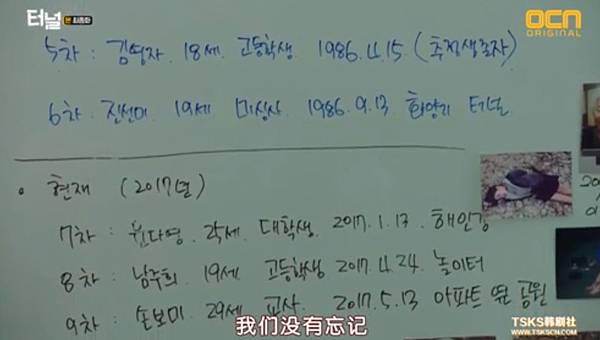 터널
최종화
OCN
ORIGINAL
5차 : 김영자. 18세. 고등학생 1986.4.15 (추정생존자)
6차 : 진선미 19세 미싱사. 1986.9.13 화양리 터널
• 현재 (2017년)
7차 : 윤다영. 21세. 대학생. 2017.1.17. 해인강
8차 : 남주희. 19세 고등학생 2017.4.24. 놀이터
9차 : 손보미. 29세 교사. 2017.5.13 아파트 뒤 공원
我们没有忘记
TSKS韩剧社
WWW.TSKSCN.COM